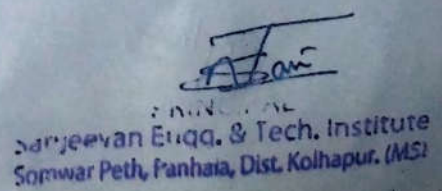 Sanjeevan Engg. & Tech. Institute
Somwar Peth, Panhala, Dist. Kolhapur. (MS)